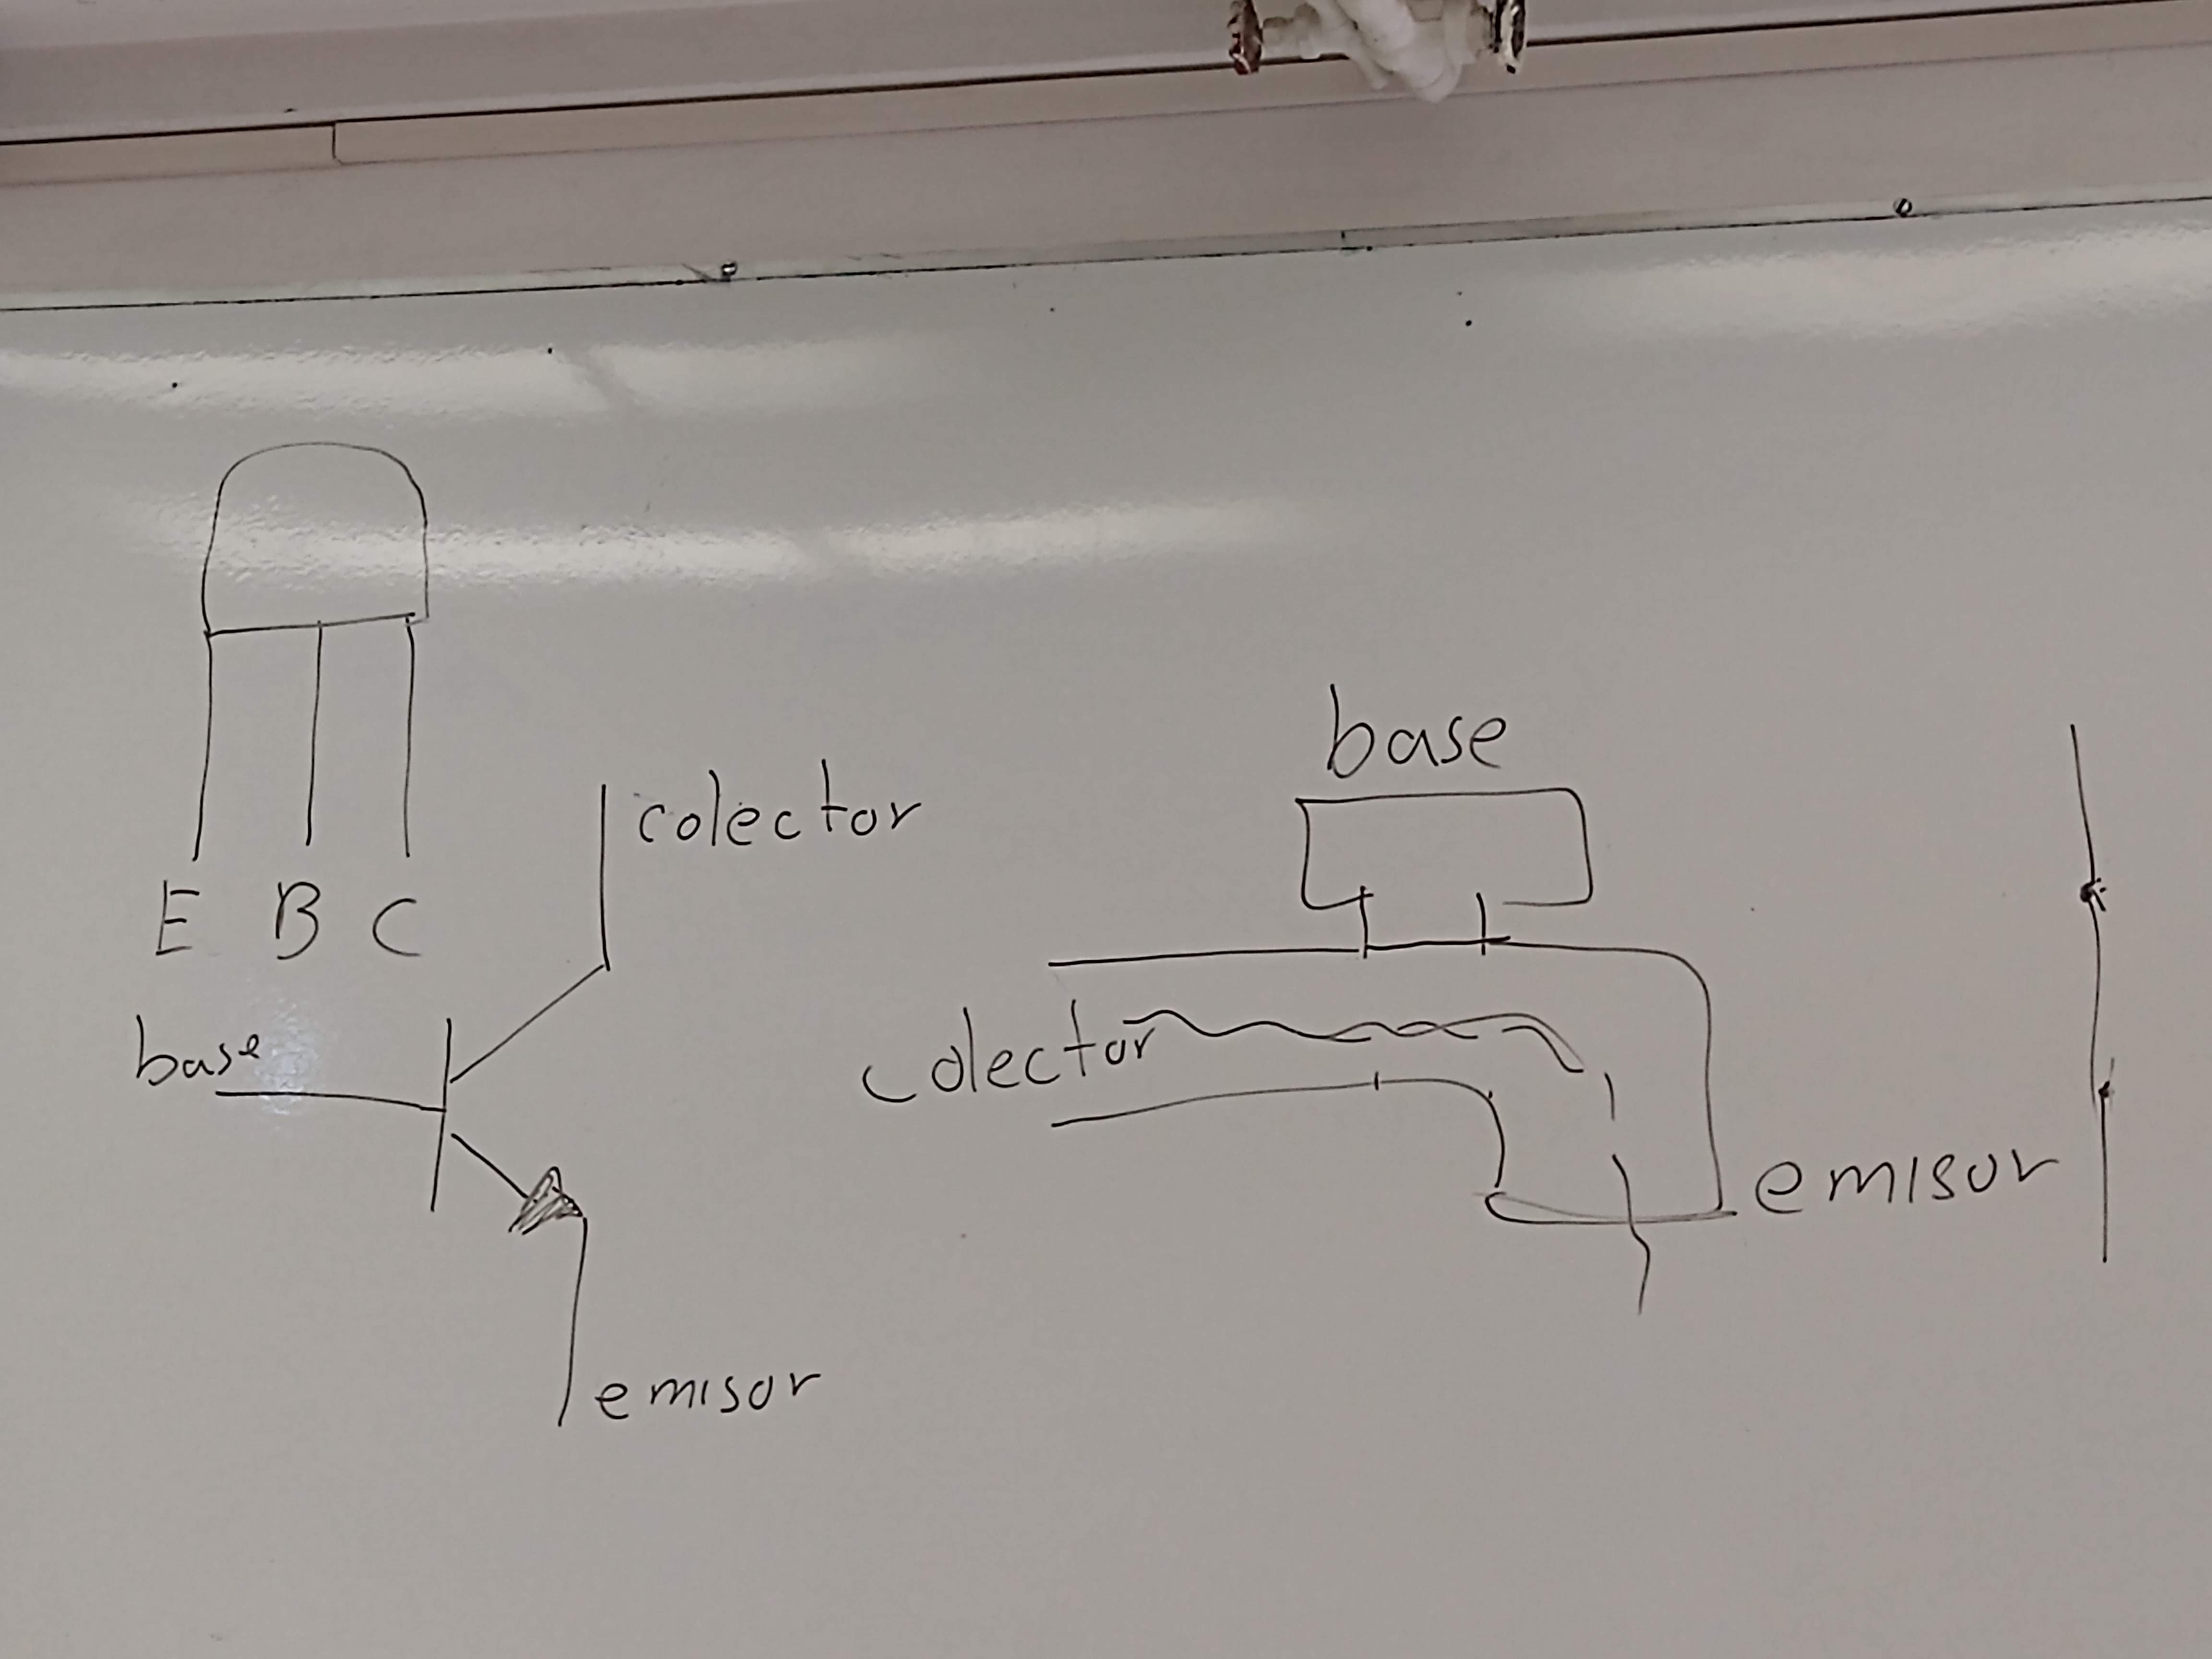 E B C
colector
base
emisor
base
colector
emisor